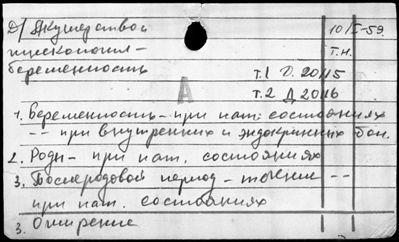 Д/ Акушерство и 10/I-59.
гинекология - т.н.
беременность т.1 О. 2015
т.2 Д 2016
А
1. Беременность - при пат. состояниях
-- при внутренних и эндокринных бол.
2. Роды - при пат. состояниях
3. Послеродовой период - течение --
при пат. состояниях
3. Ожирение